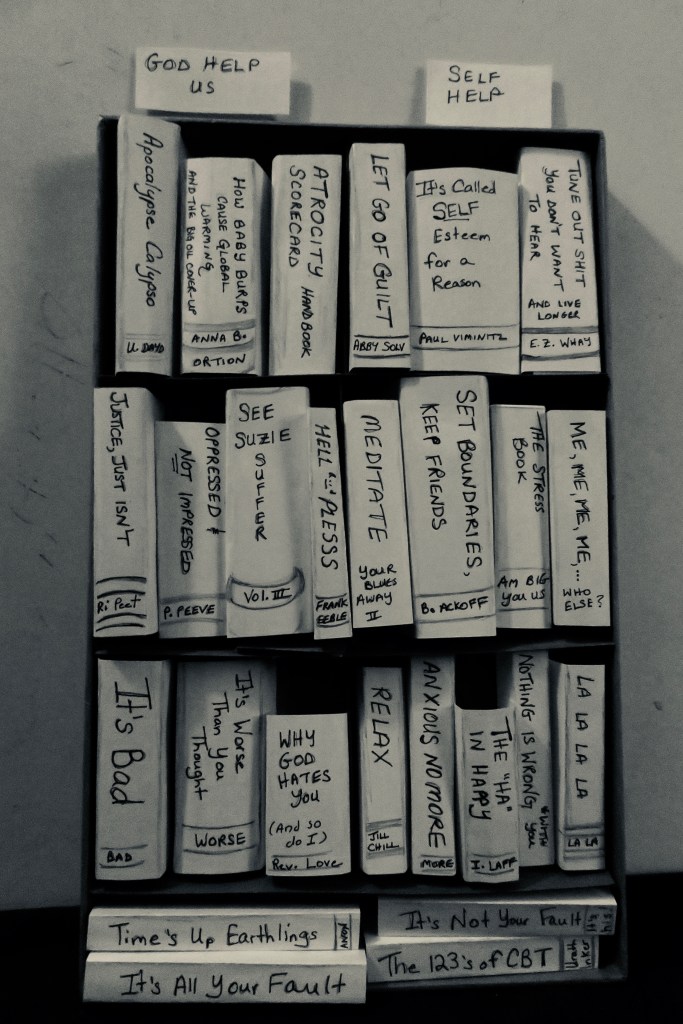 GOD HELP
US
SELF
HELP
Apocalypse Calypso
U. DAYD
HOW BABY BURPS
CAUSE GLOBAL
WARMING
AND THE BIG OIL COVER-UP
ANNA B.
ORTION
ATROCITY HANDBOOK
SCORECARD
LET GO OF GUILT
ABBY SOLV
It's Called
SELF
Esteem
for a
Reason
PAUL VIMINITZ
TUNE OUT SHIT
YOU DON'T WANT
TO HEAR
AND LIVE
LONGER
E.Z. WHAY
JUSTICE, JUST ISN'T
R. Peet
OPPRESSED &
NOT IMPRESSED
P. PEEVE
SEE
SUZIE
SUFFER
VOL. III
HELL "..." PLESSS
FRANK
EEBLE
MEDITATE
YOUR
BLUES
AWAY
II
SET BOUNDARIES,
KEEP FRIENDS
B. ACKOFF
THE STRESS
BOOK
AM BIG
YOU US
ME, ME, ME, ME,...
WHO
ELSE?
It's Bad
BAD
It's Worse
Than You
Thought
WORSE
WHY
GOD
HATES
YOU
(And so
do I)
Rev. Love
RELAX
JILL
CHILL
ANXIOUS NO MORE
MORE
THE "HA"
IN HAPPY
I. LAFF
NOTHING IS WRONG
*WITH
YOU
LA LA LA LA
LA LA
Time's Up Earthlings
It's All Your Fault
It's Not Your Fault
The 123's of CBT